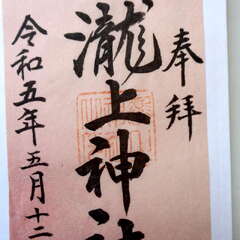 奉拝
瀧上神社
令和五年五月十二